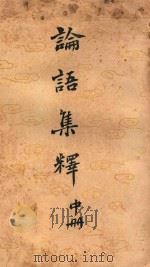 論語集釋
中册
PDG